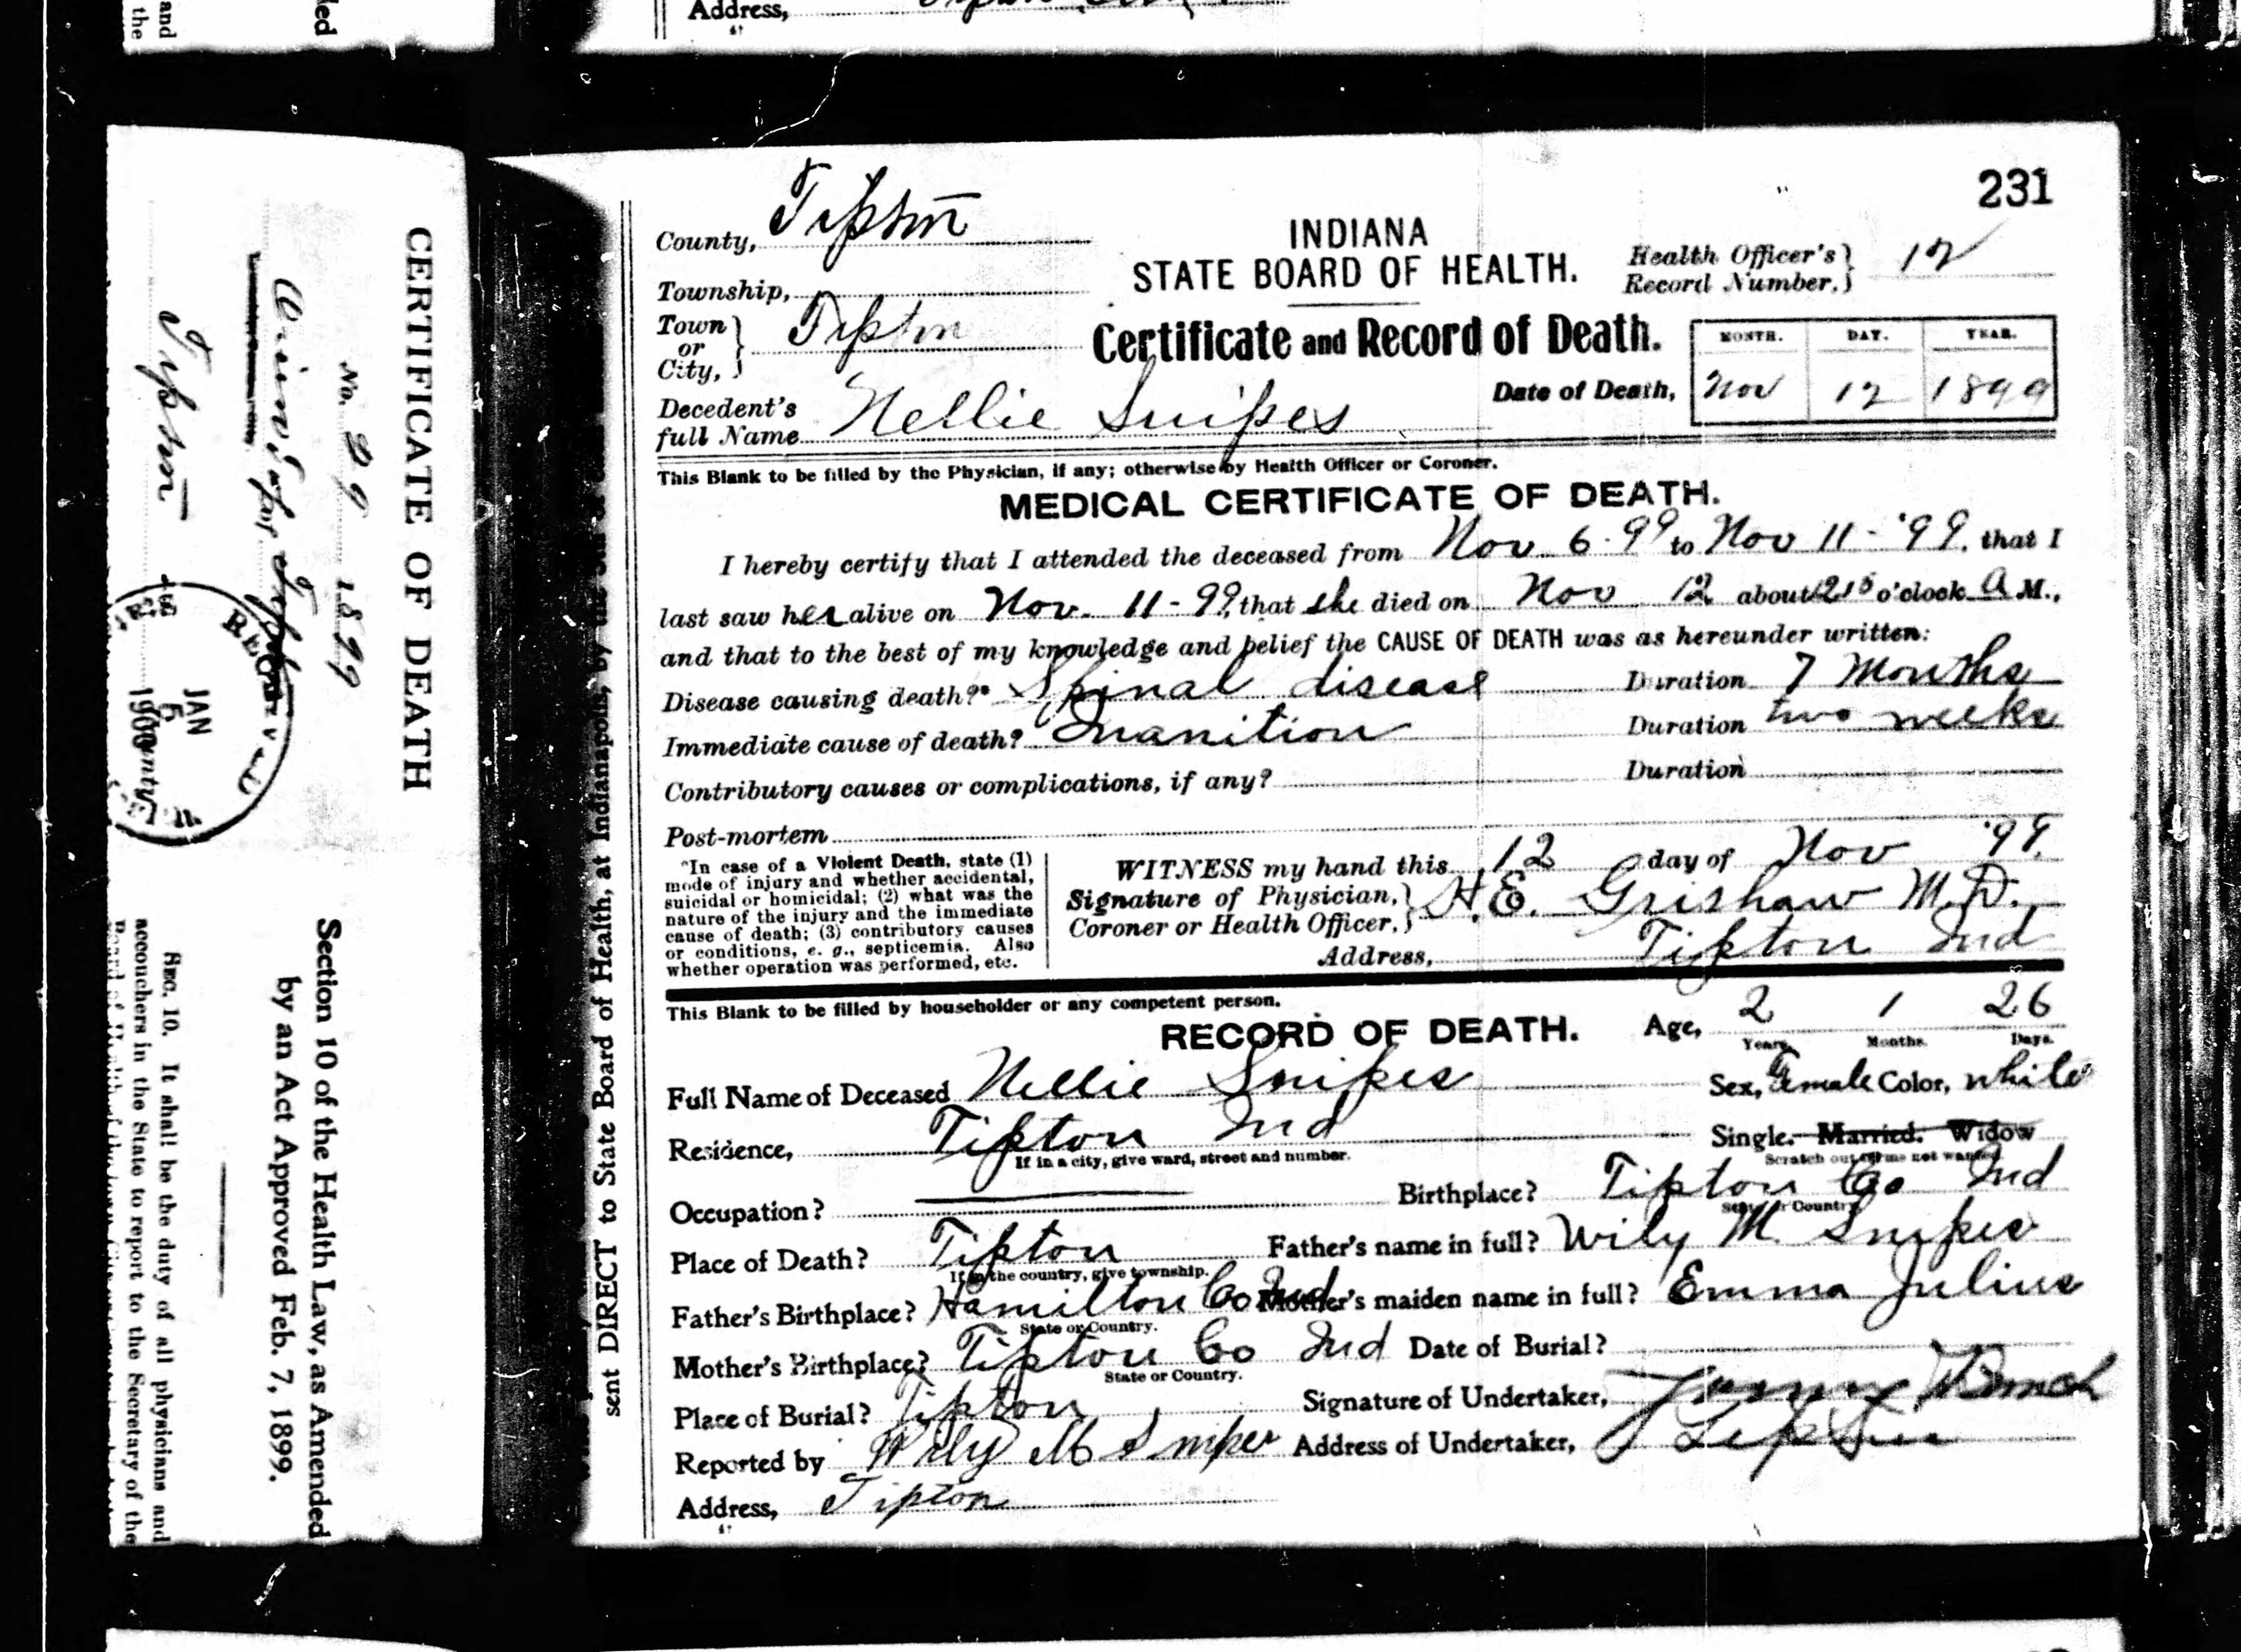 Address,
and
the
231
County, Tipton
INDIANA
STATE BOARD OF HEALTH.
Health Officer's
Record Number, 12
Township,
Town or City, Tipton
Certificate and Record of Death.
MONTH. DAY. YEAR.
Date of Death, Nov 12 1899
Decedent's full Name Nellie Snipes
This Blank to be filled by the Physician, if any; otherwise by Health Officer or Coroner.
MEDICAL CERTIFICATE OF DEATH.
I hereby certify that I attended the deceased from Nov 6-99 to Nov 11-'99, that I
last saw her alive on Nov. 11-99, that she died on Nov 12 about 1215 o'clock A M.,
and that to the best of my knowledge and belief the CAUSE OF DEATH was as hereunder written:
Disease causing death?* Spinal disease Duration 7 Months
Immediate cause of death? Inanition Duration two weeks
Contributory causes or complications, if any? Duration
Post-mortem
*In case of a Violent Death, state (1)
mode of injury and whether accidental,
suicidal or homicidal; (2) what was the
nature of the injury and the immediate
cause of death; (3) contributory causes
or conditions, e. g., septicemia. Also
whether operation was performed, etc.
WITNESS my hand this 12 day of Nov '99.
Signature of Physician, Coroner or Health Officer, H.E. Grishaw M.D.
Address, Tipton Ind
This Blank to be filled by householder or any competent person.
RECORD OF DEATH.
Age, 2 1 26
Years. Months. Days.
Full Name of Deceased Nellie Snipes Sex, Female Color, white
Residence, Tipton Ind Single. Married. Widow
If in a city, give ward, street and number. Scratch out terms not wanted.
Occupation? Birthplace? Tipton Co Ind
State or Country.
Place of Death? Tipton Father's name in full? Wily M. Snipes
If in the country, give township.
Father's Birthplace? Hamilton Co Ind Mother's maiden name in full? Emma Julius
State or Country.
Mother's Birthplace? Tipton Co Ind Date of Burial?
State or Country.
Place of Burial? Tipton Signature of Undertaker,
Reported by Wily M Snipes Address of Undertaker, Tipton
Address, Tipton
sent DIRECT to State Board of Health, at Indianapolis, by the
CERTIFICATE OF DEATH
No. 29 1899
Tipton
JAN
5
1900
County
Section 10 of the Health Law, as Amended
by an Act Approved Feb. 7, 1899.
SEC. 10. It shall be the duty of all physicians and
accouchers in the State to report to the Secretary of the